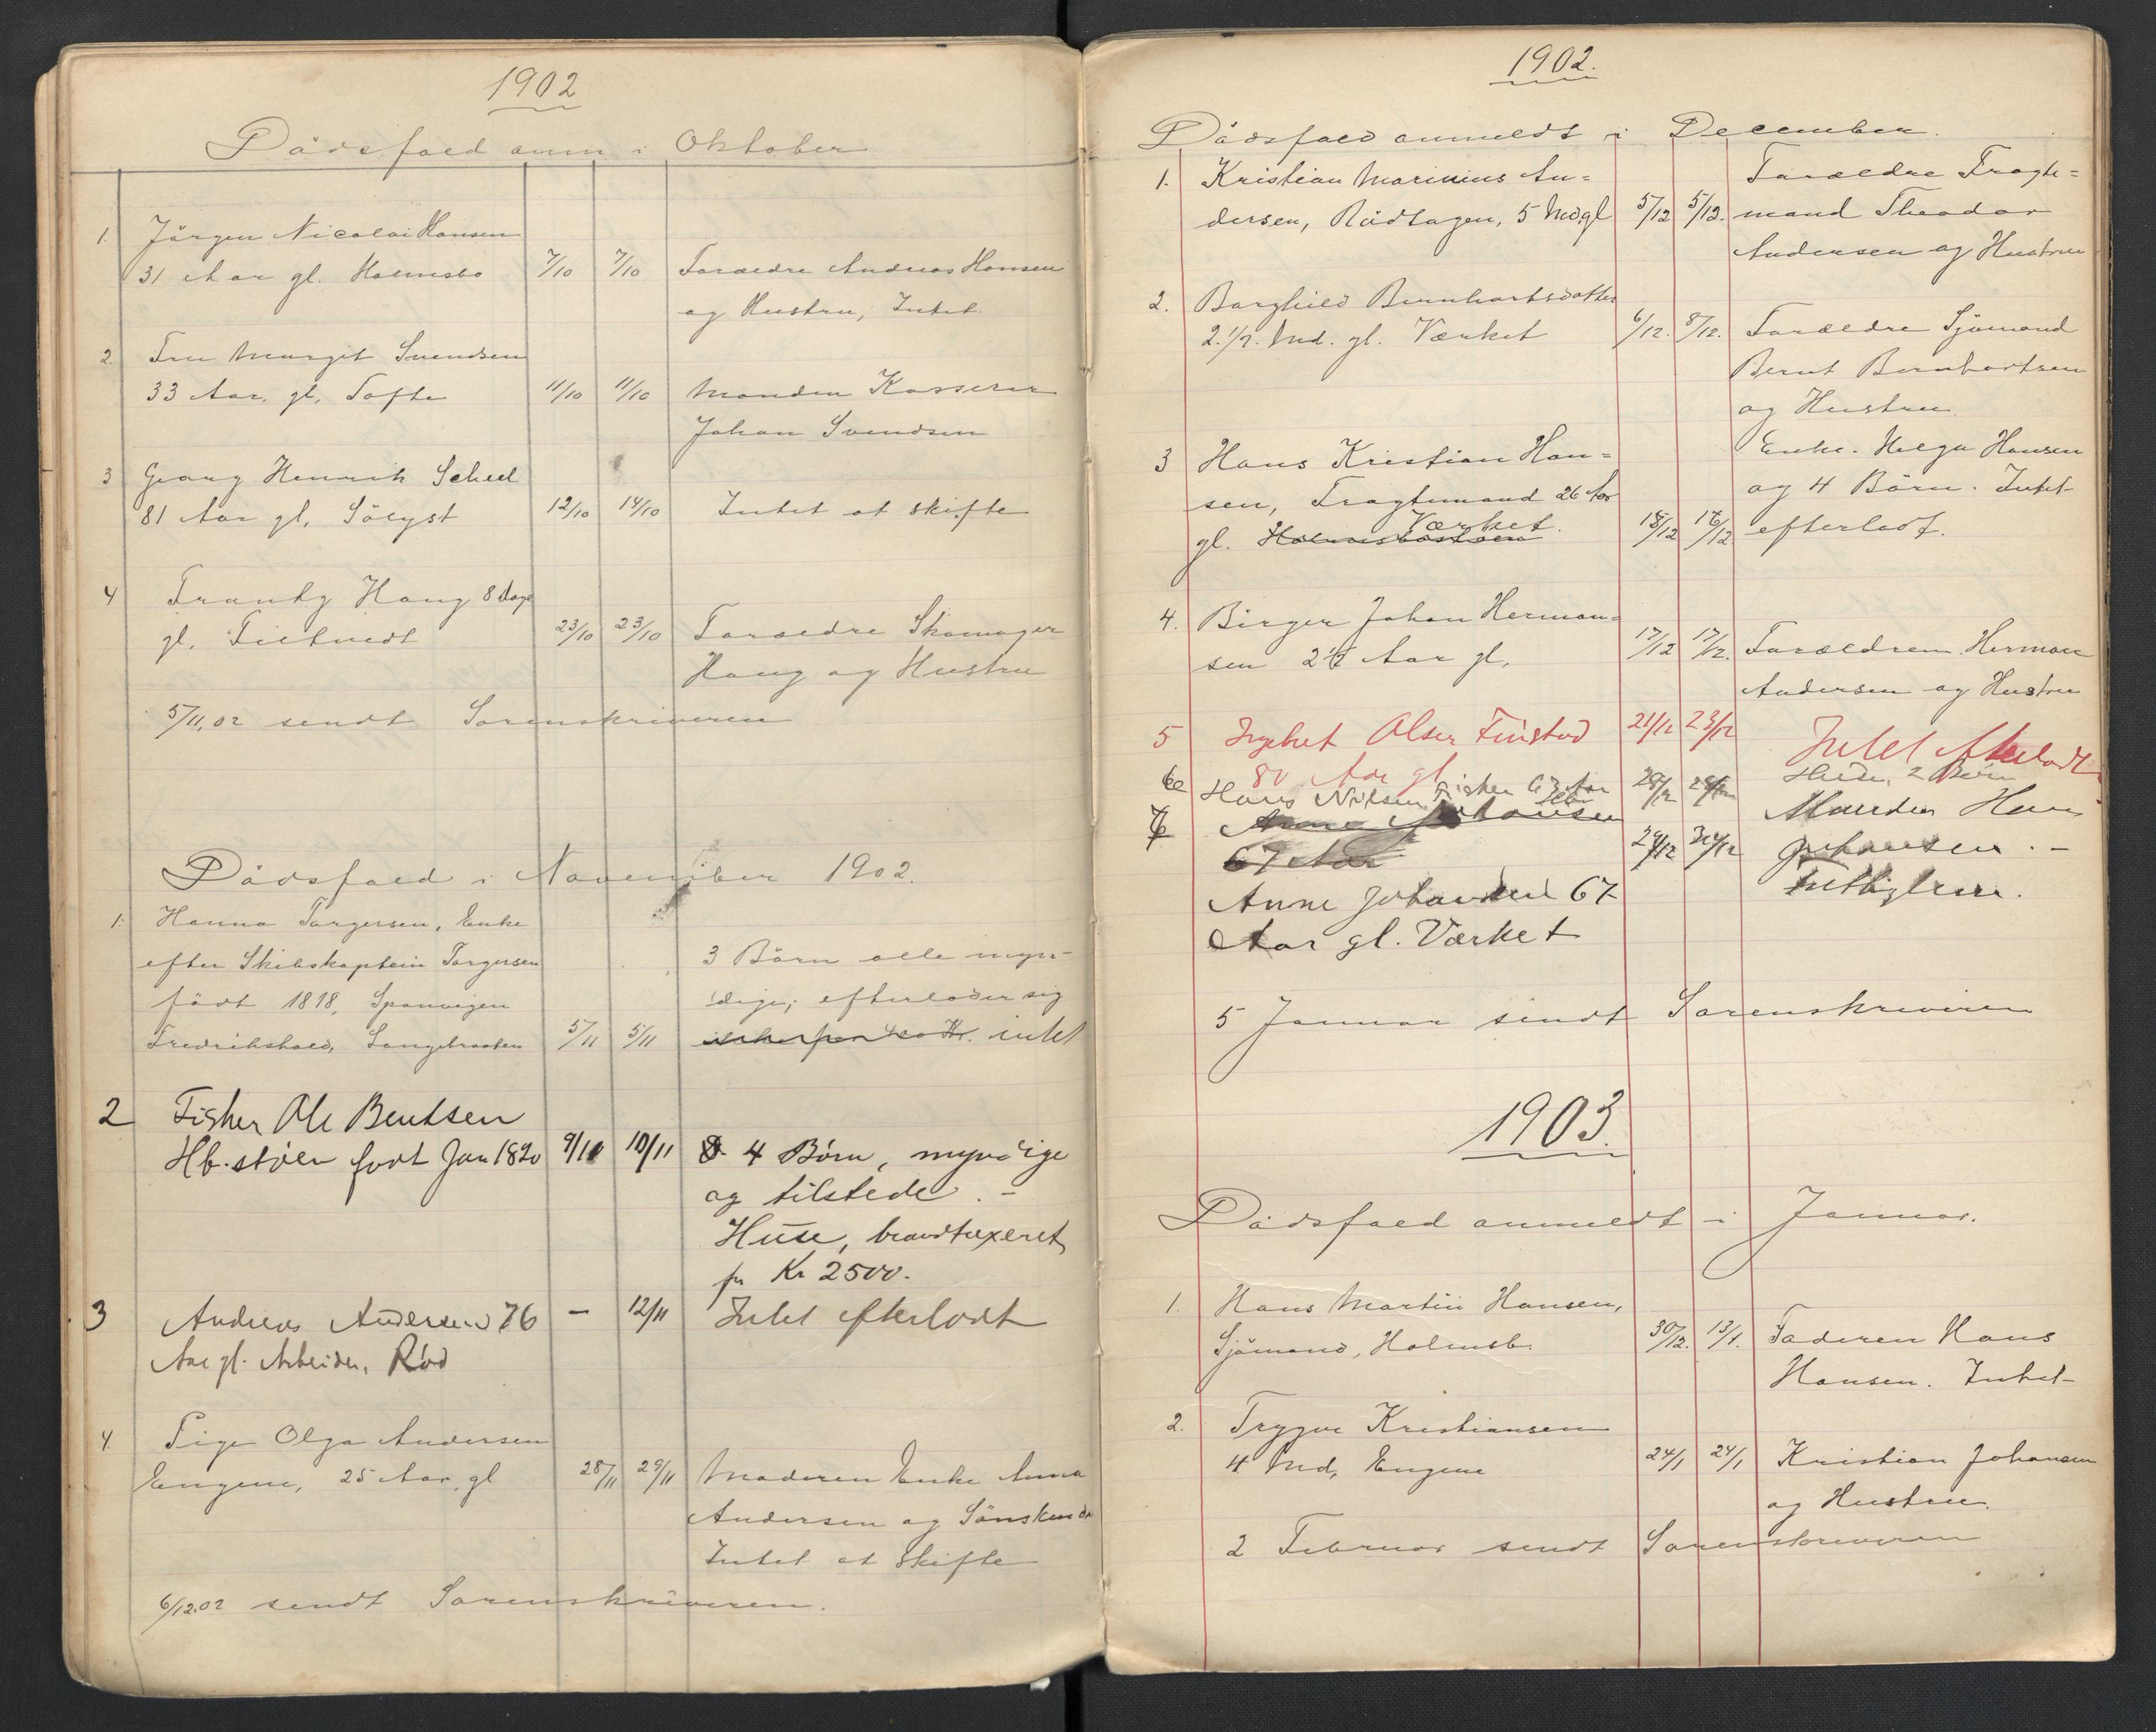 1902
Dödsfald anm i Oktober
1. Jörgen Nicolai Hansen
31 Aar gl. Holmsbo 7/10 7/10 Forældre Andreas Hansen
og Hustru, Intet.
2. Fru Margit Svendsen
33 Aar. gl, Tofte 11/10 11/10 Manden Kasserer
Johan Svendsen
3 Georg Henrik Scheel
81 Aar gl, Sölyst 12/10 14/10 Intet at skifte
4 Haug 8 Dage
gl. Filtvedt 23/10 23/10 Forældre Skomager
Haug og Hustru
5/11,02 sendt Sorenskriveren
Dödsfald i November 1902.
1. Hanna Torgersen, Enke
efter Skibskaptein Torgersen 3 Börn alle myn-
födt 1818, Spanvigen dige; efterlader sig
Fredrikshald, Langebraaten 5/11 5/11 intet
2 Fisker Ole Bentsen
Hb.støen født Jan 1820 9/11 10/11 4 Børn, myndige
og tilstede. -
Huse, brandtaxeret
fr Kr 2500.
3 Andreas Andersen 76 - 12/11 Intet efterladt
Aar gl. Arbeider, Rød
4. Pige Olga Andersen
Engene, 25 Aar, gl 28/11 29/11 Moderen Enke Anna
Andersen og Söskende
Intet at skifte
6/12.02 sendt Sorenskriveren.
1902.
Dödsfald anmeldt i December.
1. Kristian Marinius An= Forældre Fragte=
dersen, Rödtagen, 5 Md gl 5/12 5/12. mand Theodor
Andersen og Hustru
2. Borghild Bernhartsdatter
2.1/2. Md. gl. Værket 6/12. 8/12. Forældre Sjömand
Bernt Bernhartsen
og Hustru.
3 Hans Kristian Han= Enke. Helga Hansen
sen, Fragtemand 26 Aar og 4 Börn. Intet
Værket.
gl. Holmsbostöen 15/12 16/12 efterladt.
4. Birger Johan Herman=
sen 2 1/2 Aar gl, 17/12 17/12. Forældrene Herman
Andersen og Hustru
5 Ingebret Olsen Finstad 21/12 23/12 Intet efterladt
80 Aar gl
6 Hans Nilsen Fisker 63 Aar 28/12 28/12 2 Børn
7 Anne Johansen Manden Hans
67 Aar 29/12 30/12 Johansen. -
Anne Johansen 67
Aar gl. Værket
5 Januar sendt Sorenskriveren
1903.
Dödsfald anmeldt i Januar.
1. Hans Martin Hansen,
Sjömand, Holmsb. 30/12. 13/1. Faderen Hans
Hansen. Intet-
2. Trygve Kristiansen
4 Md, Engene 24/1 24/1 Kristian Johansen
og Hustru.
2 Februar sendt Sorenskriveren